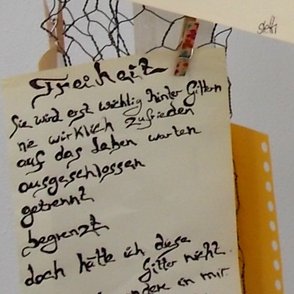 Steffi
Freiheit
Sie wird erst wichtig hinter Gittern
nie wirklich zufrieden
auf das Leben warten
ausgeschlossen
getrennt
begrenzt
doch hätte ich diese
Gitter nicht
andere an mir